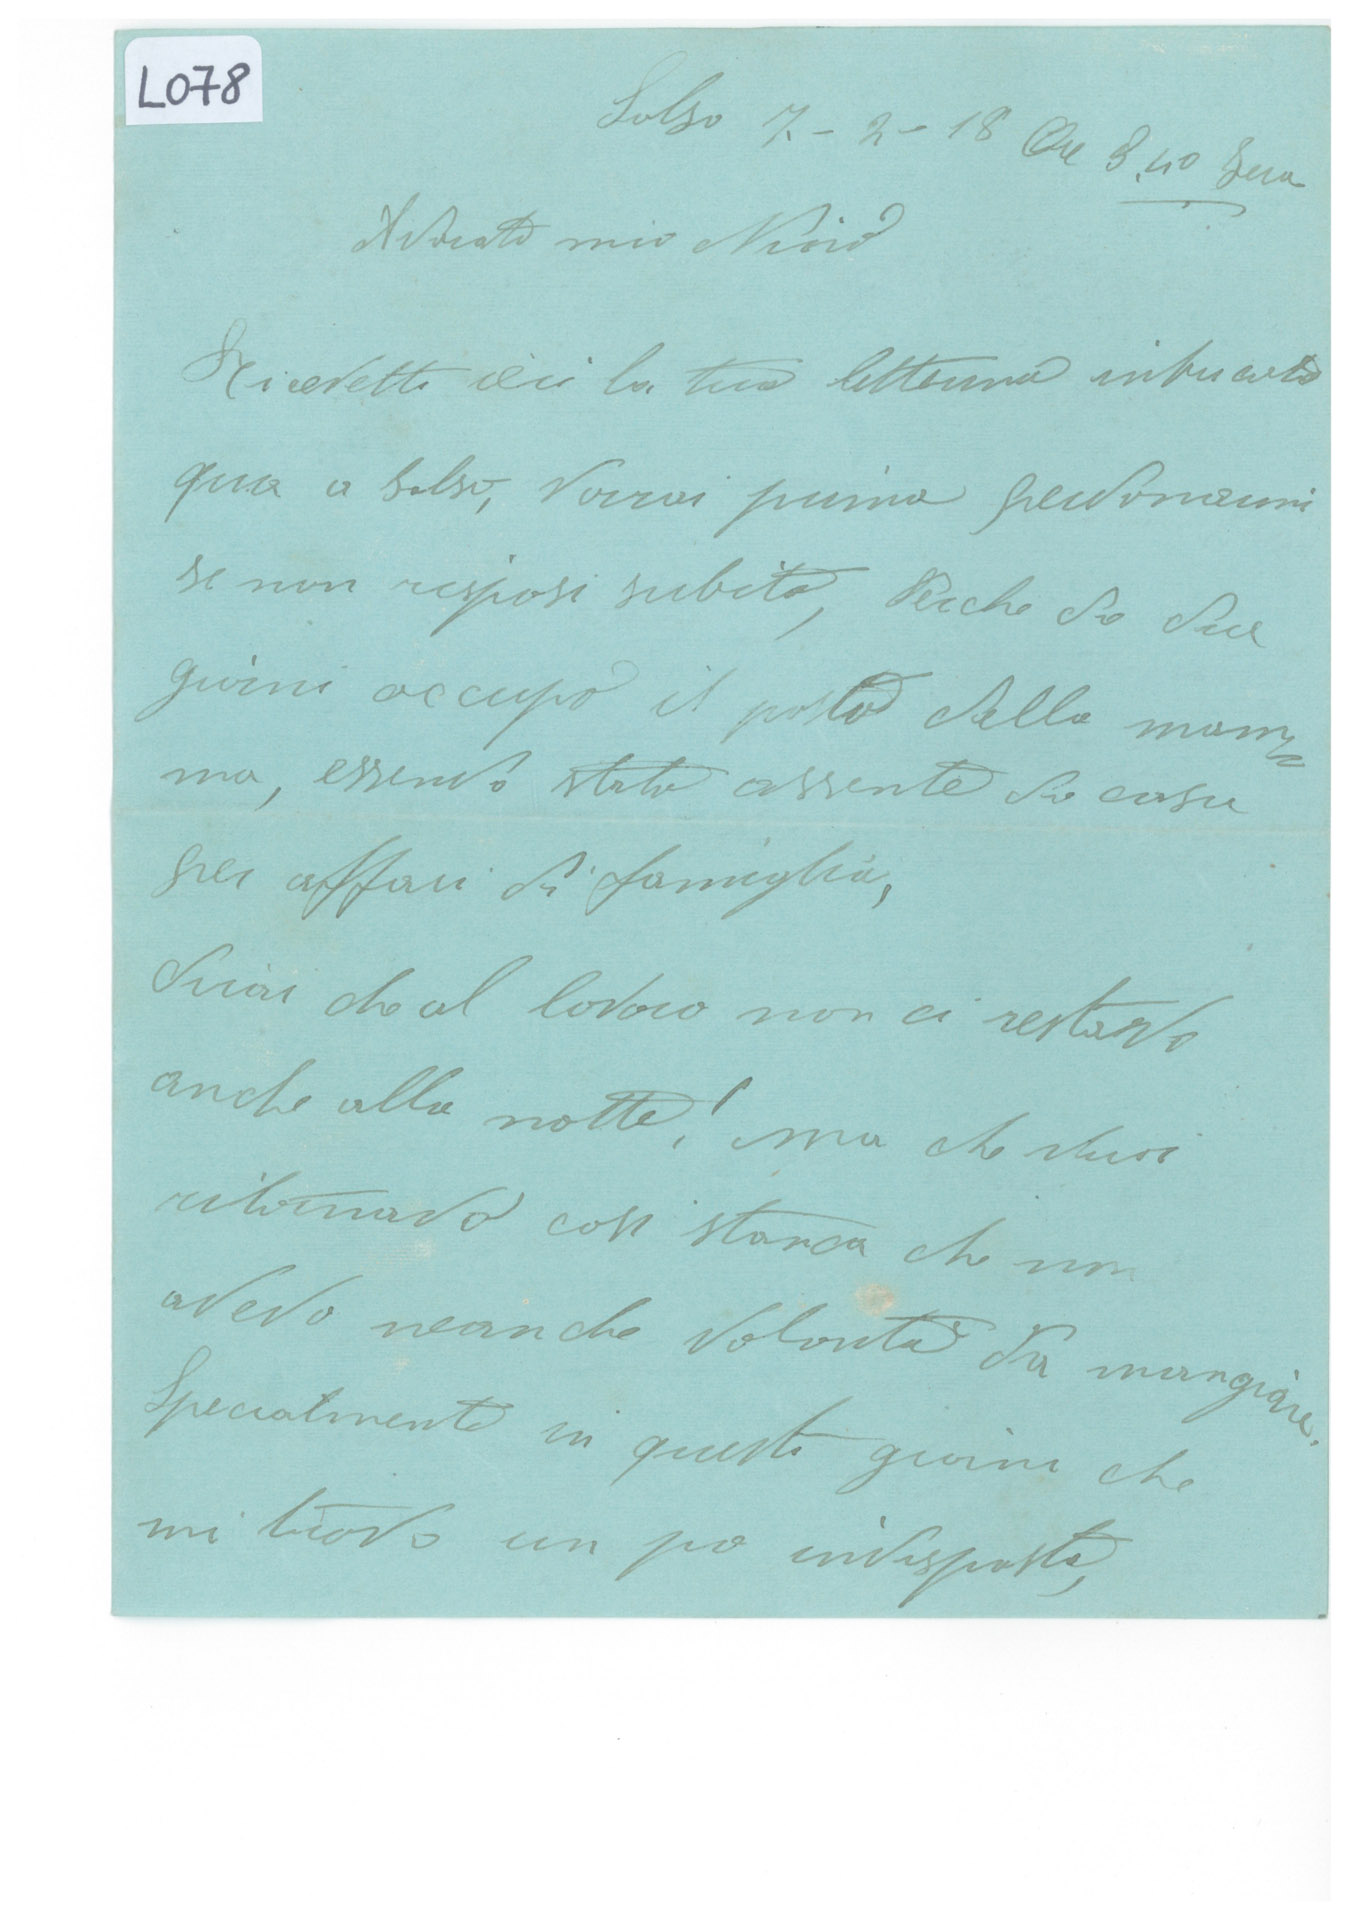 L078
Salso 7-2-18 Ore 8.40 Sera
Adorato mio
Ricevetti ieri la tua letterina imbucata
qua a Salso, vorrai prima perdonarmi
se non risposi subito, Perche da due
giorni occupo il posto della mam
ma, essendo stata assente da casa
per affari di famiglia,
Dirai che al lavoro non ci restavo
anche alla notte! ma che vuoi
ritornavo cosi stanca che non
avevo neanche volontà da mangiare.
Specialmente in questi giorni che
mi trovo un po indisposta,